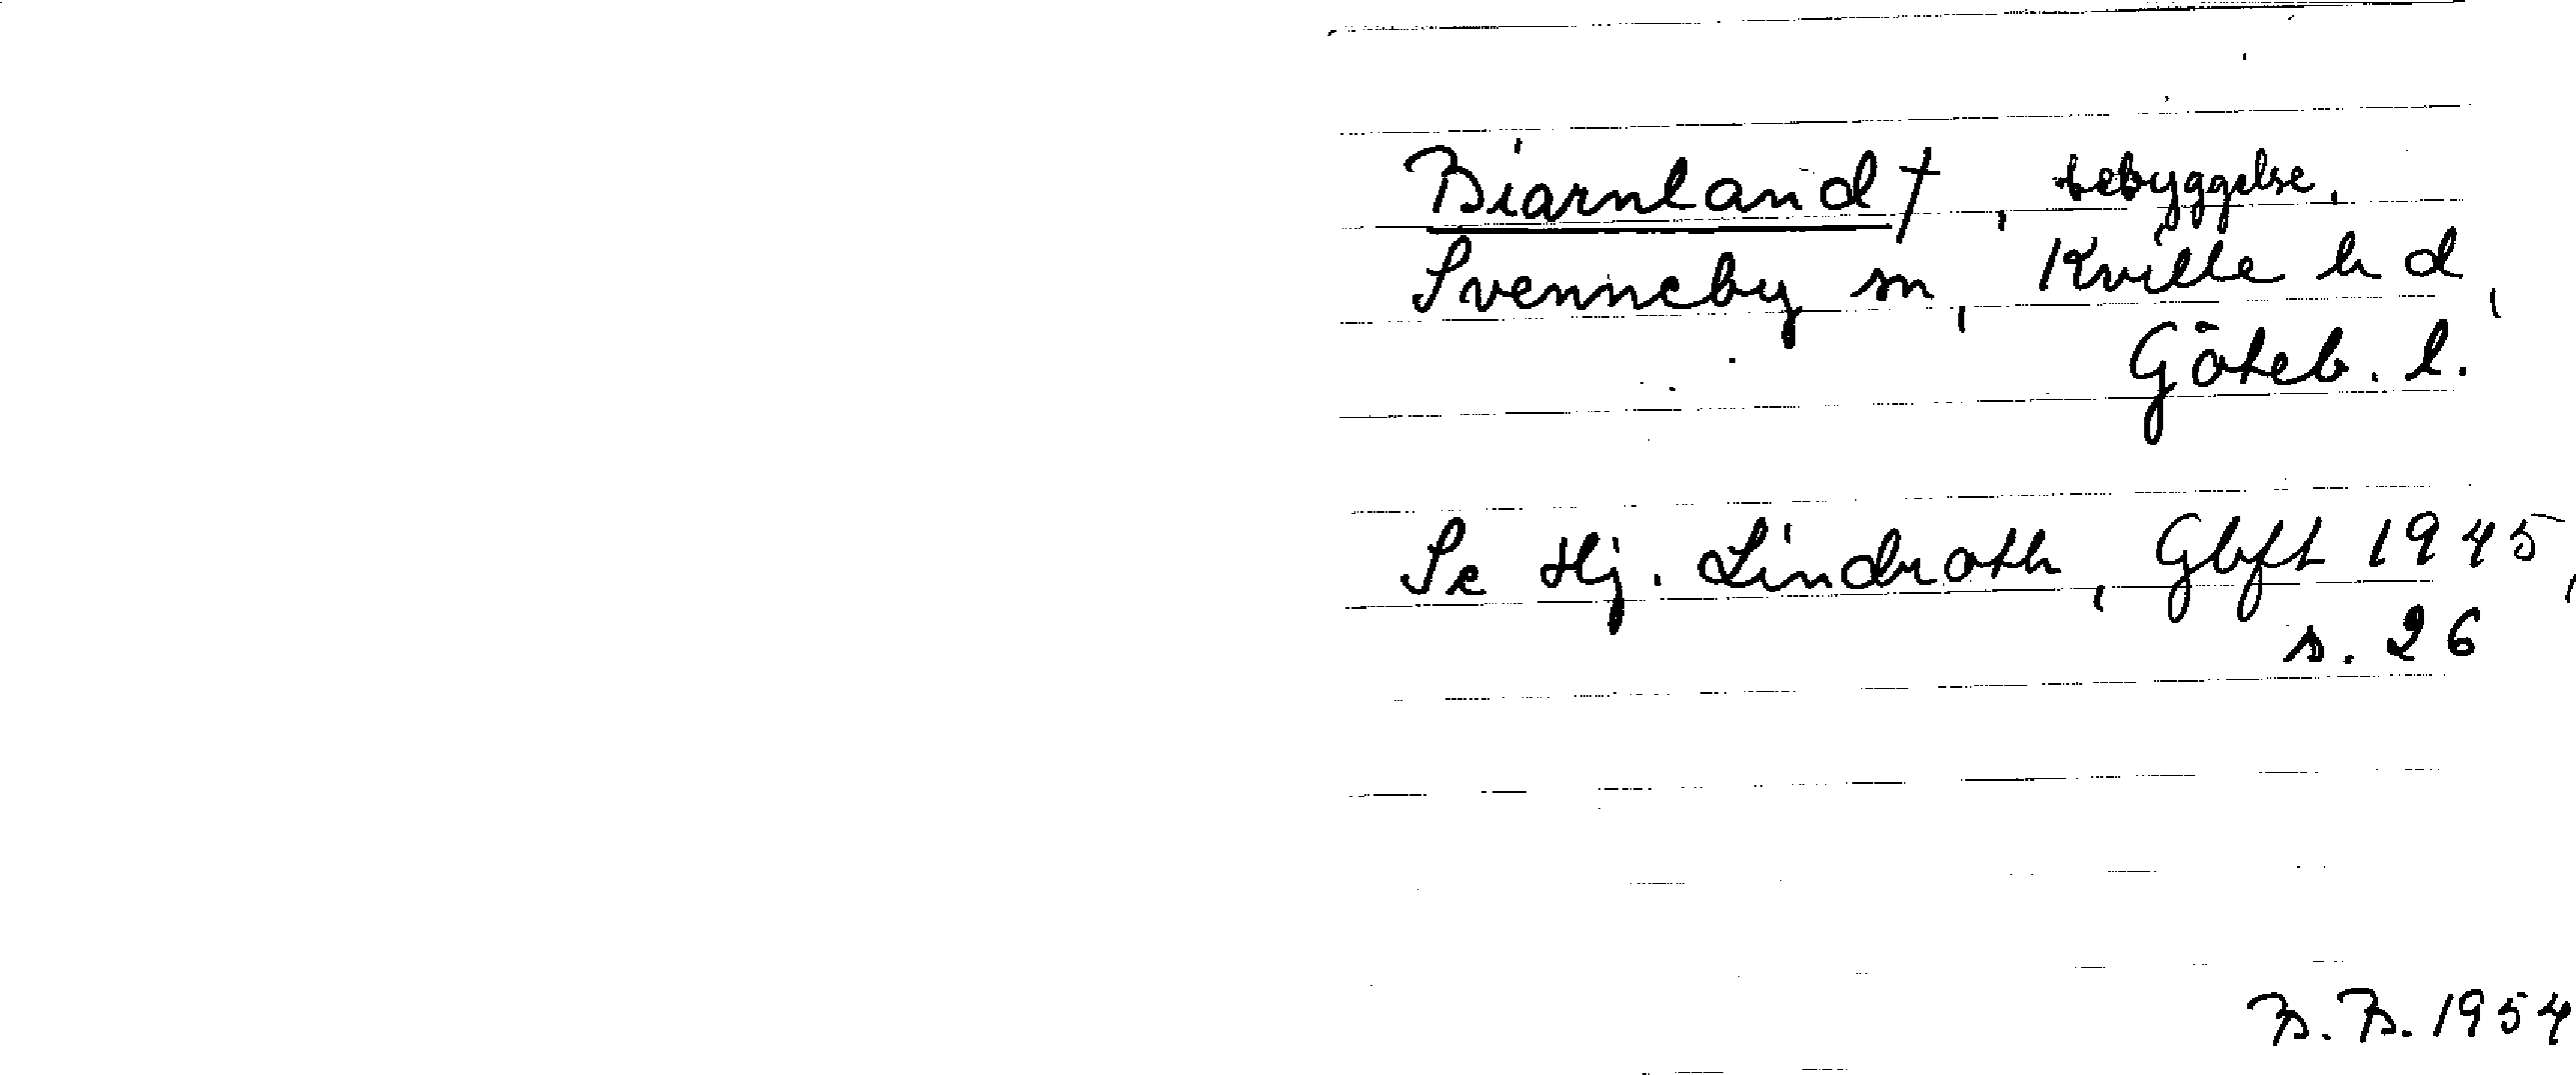 Biarnland †, bebyggelse,
Svenneby sn, Kville hd,
Göteb. l.
Se Hj. Lindroth, Gbft 1945,
s. 26
B. B. 1954